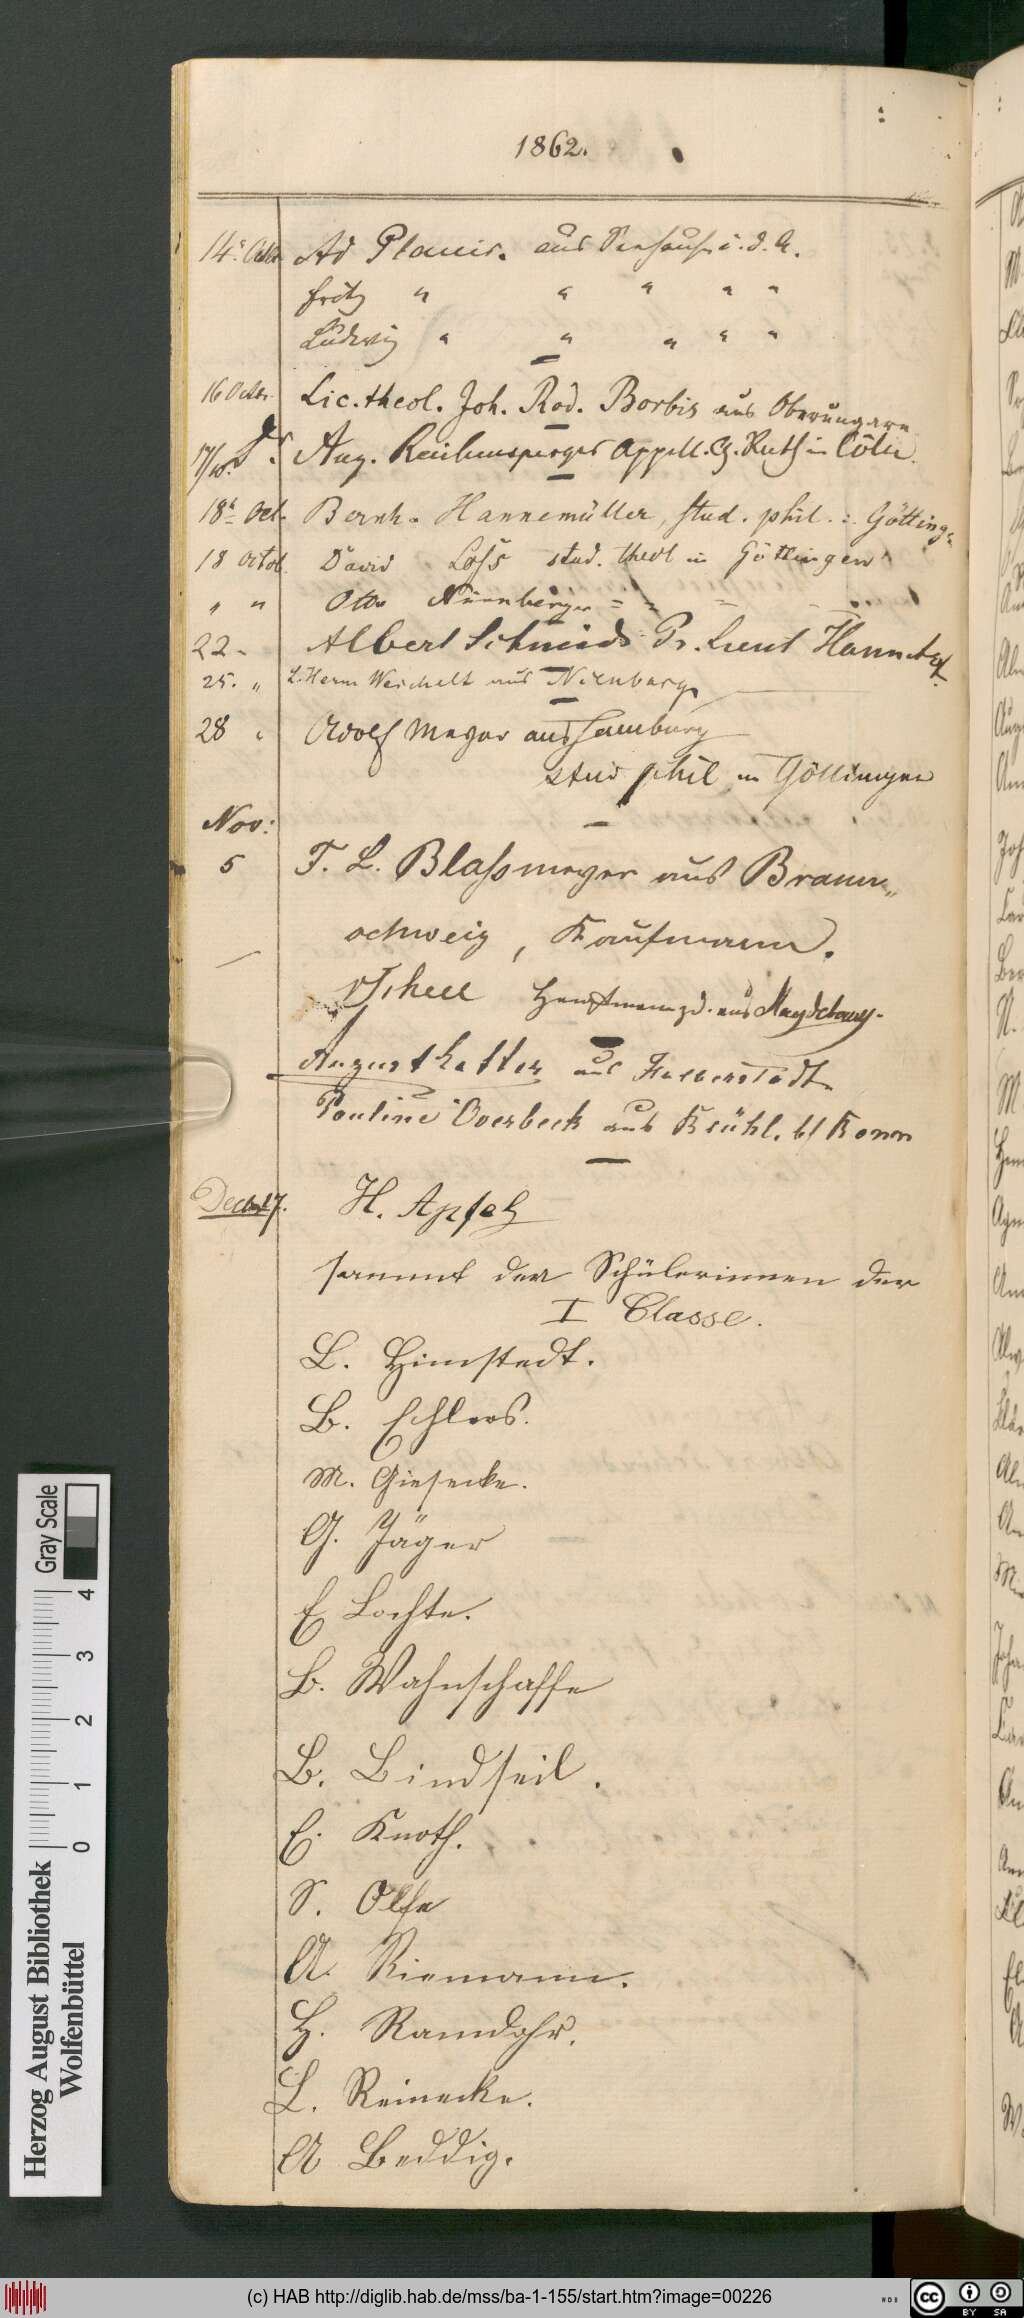 1862.
14t. Octbr Ad Planis. aus Seehausen i. d. A.
Fritz " " " " "
Ludwig " " " " "
16 Octbr. Lic. theol. Joh. Rod. Borbis aus Oberungarn
17/10. Aug. Reichensperger Appell. G. Rath in Cöln.
18t Oct. Bernh. Hannemüller, stud. phil. : Götting.
18 Octob. David Loß stud. theol in Göttingen
" " Otto Nürnberger = = =
22 - Albert Schmidt Pr. Lieut
25. " Herm Weichelt aus Nürnberg
28 " Adolf Meyer aus Hamburg
stud phil in Göttingen
Nov:
5 F. L. Blaßmeyer aus Braun„
schweig, Kaufmann.
Hauptmann aus Magdeburg.
August aus Halberstadt
Pauline Overbeck aus Brühl. b/ Bonn
Decbr 17. H. Apfel
sammt den Schülerinnen der
I Classe.
L. Himstedt.
B. Ehlers.
M. Giesecke.
G. Jäger
E Lochte.
B. Wahnschaffe
B. Bindseil.
E. Knoth.
S. Olfe
A. Riemann.
H. Ramdohr.
L. Reinecke.
A Beddig.
Gray Scale
0 1 2 3 4
Herzog August Bibliothek
Wolfenbüttel
(c) HAB http://diglib.hab.de/mss/ba-1-155/start.htm?image=00226
cc BY SA